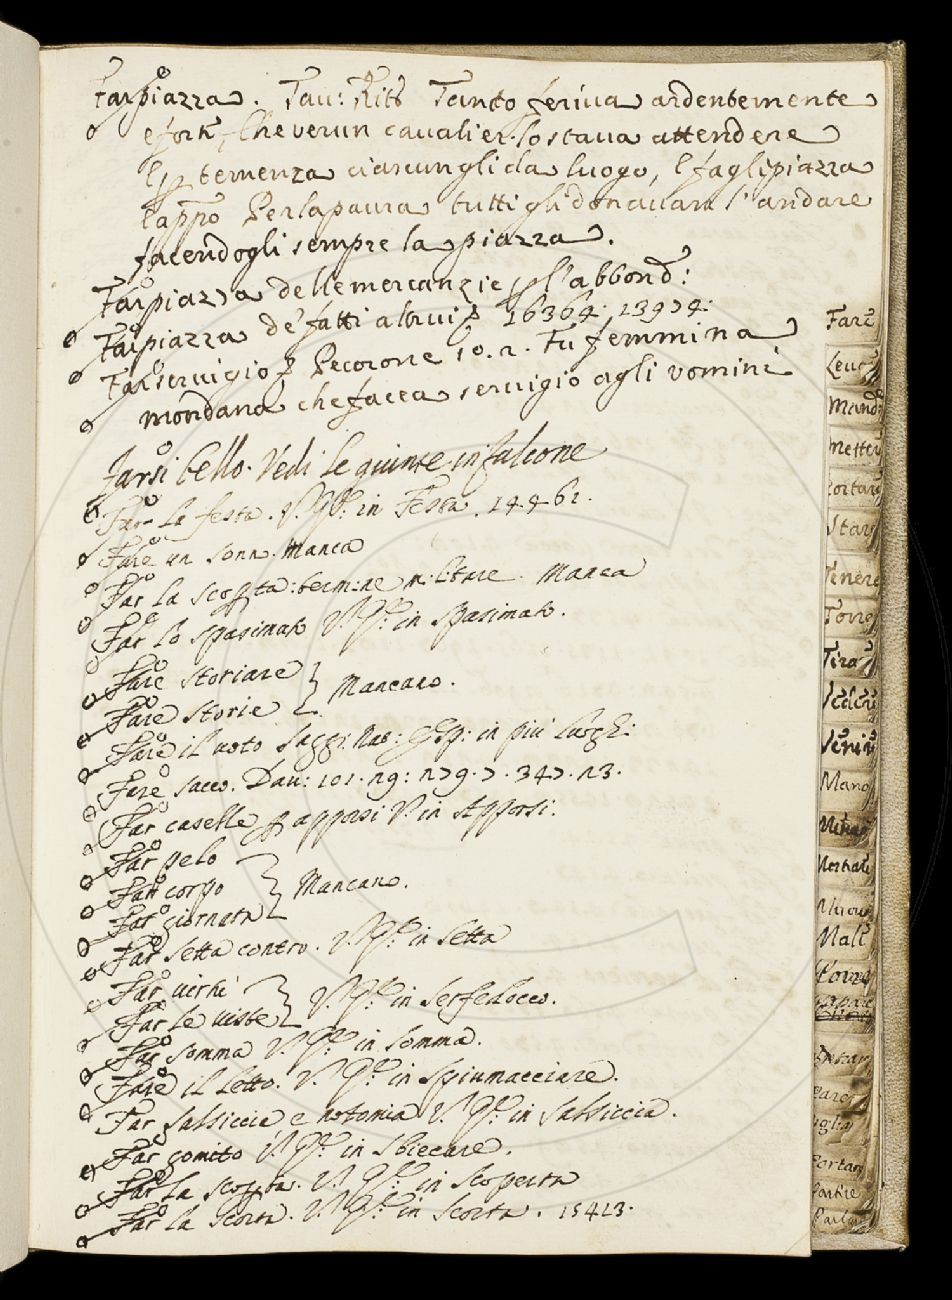 Far piazza. Tau: Rit: Tanto feriua ardentemente
e forte, che verun caualier lo staua attendere
E p temenza ciascun gli da luogo, E fagli piazza
E appo Per la paura tutti gli donauan l'andare
facendogli sempre la piazza.
Far piazza delle mercanzie p l'abbond:
Far piazza de' fatti altrui p 16364: 13974:
Far seruigio p Pecorone 10. 2. Fu femmina
mondana che facea seruigio agli vomini
Farsi bello. Vedi le giunte in falcone
Far la festa. V. in Festa. 14461.
Fare un sonn. Manca
Far la scopta: termine militare. Manca
Far lo spasimato V. in spasimato.
Fare storiare
Mancano.
Fare storie
Fare il uoto Saggi. Nat: Esp: in più luoghi:
Fare sacco. Dau: 101. 29: 279. 7. 347. 23.
Far caselle p apporsi V. in Apporsi:
Far pelo
Far corpo
Mancano.
Far giornata
Far setta contro. V. in setta
Far uerni
V. in Serfedocco.
Far le uiste
Far somma V. in somma.
Fare il letto. V. in spiumacciare.
Far salsiccia e notomia V. in salsiccia.
Far gomito V. in sbiecare.
Far la scopta. V. in Scoperta
Far la scorta. V. in Scorta. 15413.
Fare
Leuar
Mand
Metter
Portare
Stare
Tenere
Torre
Tirar
Vedere
Venir
Mano
Mal
Portar
Partire
Parlar